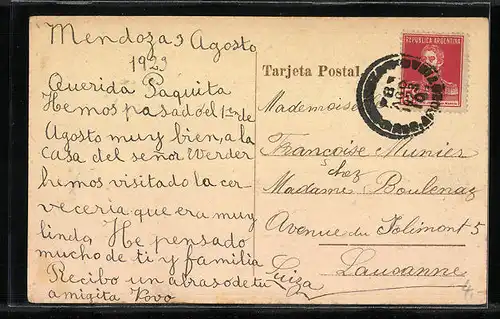 Mendoza 3 Agosto
1923
Querida Paquita
Hemos pasado el 1ro de
Agosto muy bien, a la
casa del señor Werder
hemos visitado la cer
vecería que era muy
linda, He pensado
mucho de ti y familia
Recibo un abraso de tu
amigita Vovo
Luiza
Tarjeta Postal
REPUBLICA ARGENTINA
Mademoiselle
Françoise Munier
chez
Madame Boulenaz
Avenue du Solimont 5
Lausanne